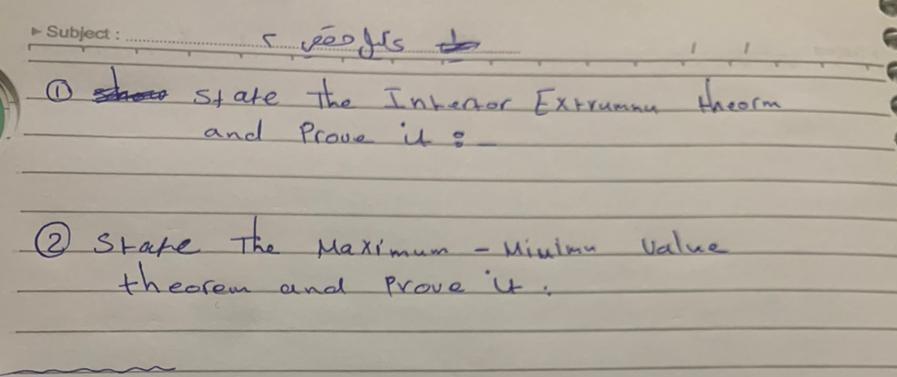 Subject :
① State The Interior Extrumnu theorm
and Prove it :-
② State The Maximum - Minimu Value
theorem and Prove it .